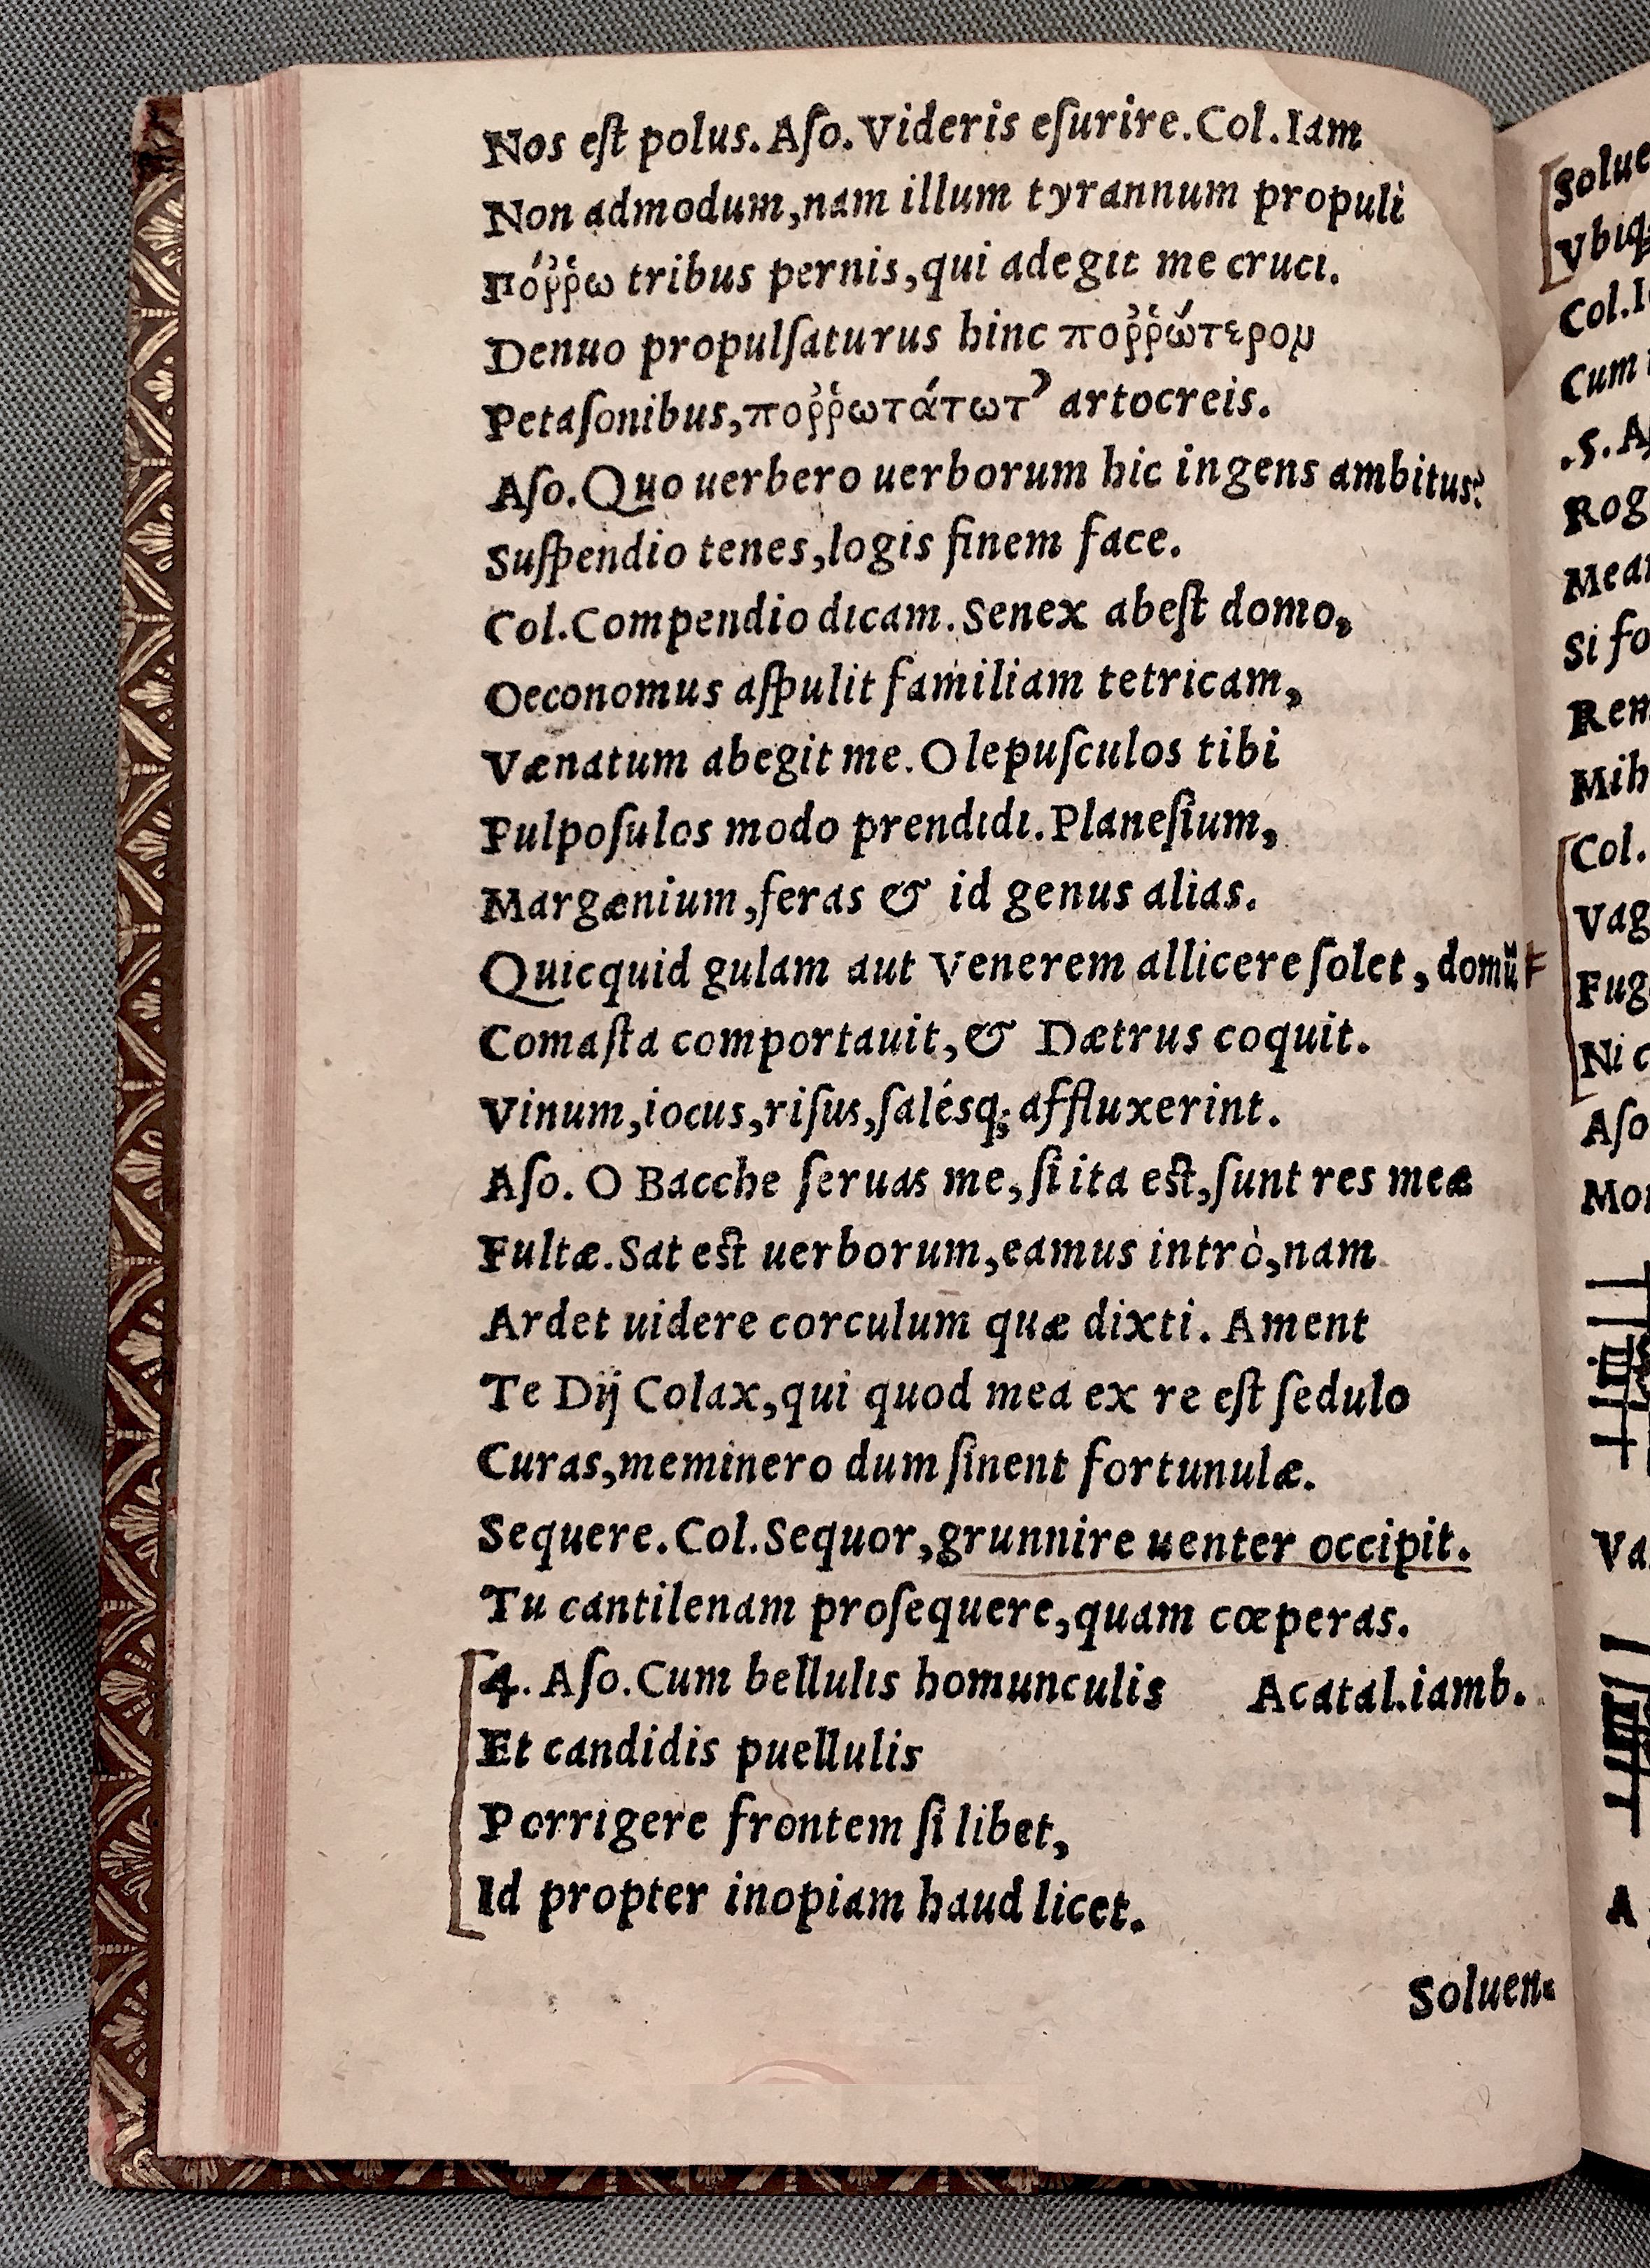 Nos eſt polus. Aſo. Videris eſurire. Col. Iam
Non admodum, nam illum tyrannum propuli
Πόῤῥω tribus pernis, qui adegit me cruci.
Denuo propulſaturus hinc ποῤῥώτερον
Petaſonibus, ποῤῥωτάτωτ’ artocreis.
Aſo. Quo uerbero uerborum hic ingens ambitus?
Suſpendio tenes, logis finem face.
Col. Compendio dicam. Senex abeſt domo,
Oeconomus aſpulit familiam tetricam,
Vænatum abegit me. O lepuſculos tibi
Pulpoſulos modo prendidi. Planeſium,
Margænium, feras & id genus alias.
Quicquid gulam aut Venerem allicere ſolet, domũ
Comaſta comportauit, & Dætrus coquit.
Vinum, iocus, riſus, ſalésq; affluxerint.
Aſo. O Bacche ſeruas me, ſi ita eſt, ſunt res meæ
Fultæ. Sat eſt uerborum, eamus intrò, nam
Ardet uidere corculum quæ dixti. Ament
Te Dij Colax, qui quod mea ex re eſt ſedulo
Curas, meminero dum ſinent fortunulæ.
Sequere. Col. Sequor, grunnire uenter occipit.
Tu cantilenam proſequere, quam cœperas.
4. Aſo. Cum bellulis homunculis Acatal. iamb.
Et candidis puellulis
Porrigere frontem ſi libet,
Id propter inopiam haud licet.
Soluen-
Solue
Vbiq;
Col. I
Cum
.5. Aſ
Rog
Mea
Si fo
Rem
Mih
Col.
Vag
Fug
Ni c
Aſo
Mo
Va
A